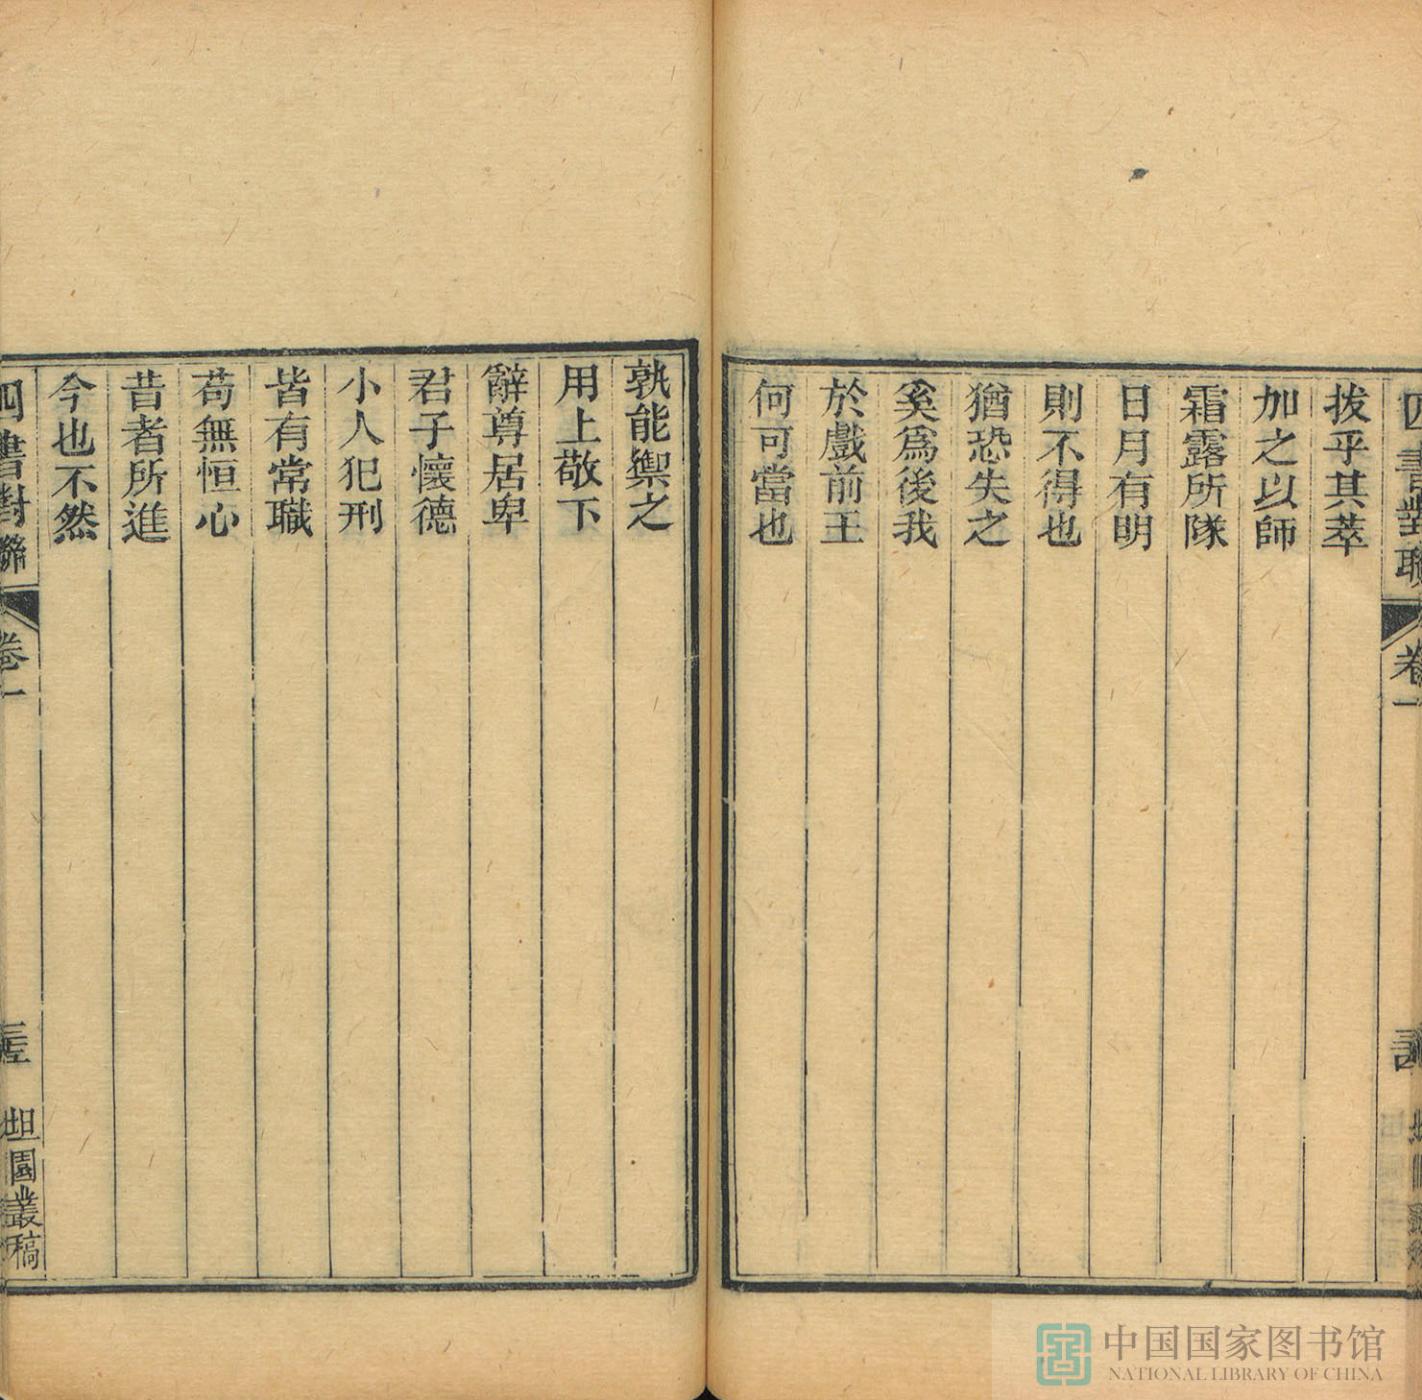 四書對聯 卷一
拔乎其萃
加之以師
霜露所隊
日月有明
則不得也
猶恐失之
奚爲後我
於戲前王
何可當也
孰能禦之
用上敬下
辭尊居卑
君子懷德
小人犯刑
皆有常職
苟無恒心
昔者所進
今也不然
四書對聯 卷一 坦園叢稿
中国国家图书馆
NATIONAL LIBRARY OF CHINA